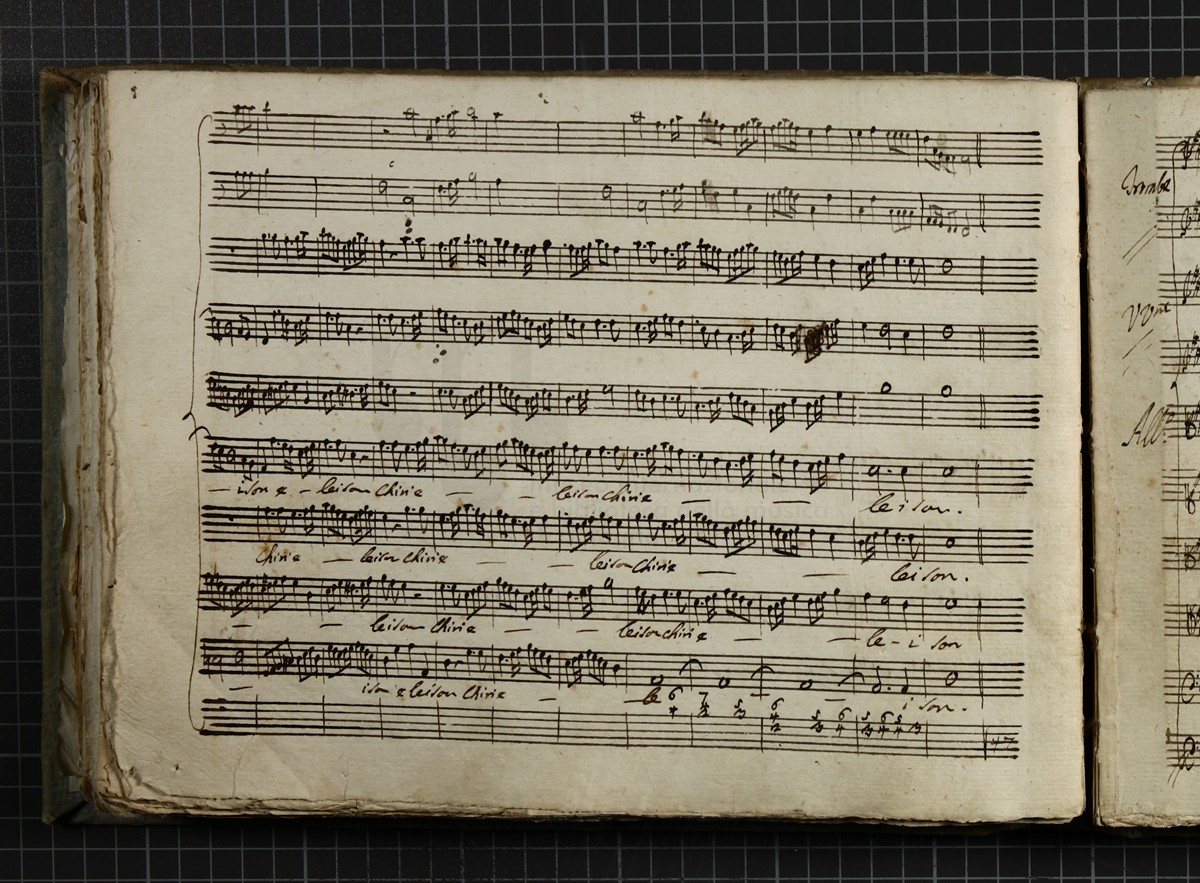 – ison e – leison Chirie – – leison Chirie – – leison.
Chirie – leison Chirie – – leison Chirie – – leison.
– – leison Chirie – – leison chirie – – le – i son
– ison eleison Chirie – – le i son.
6 7 5 6 5 6 5 6 5
47
Trombe
VVni
All.º